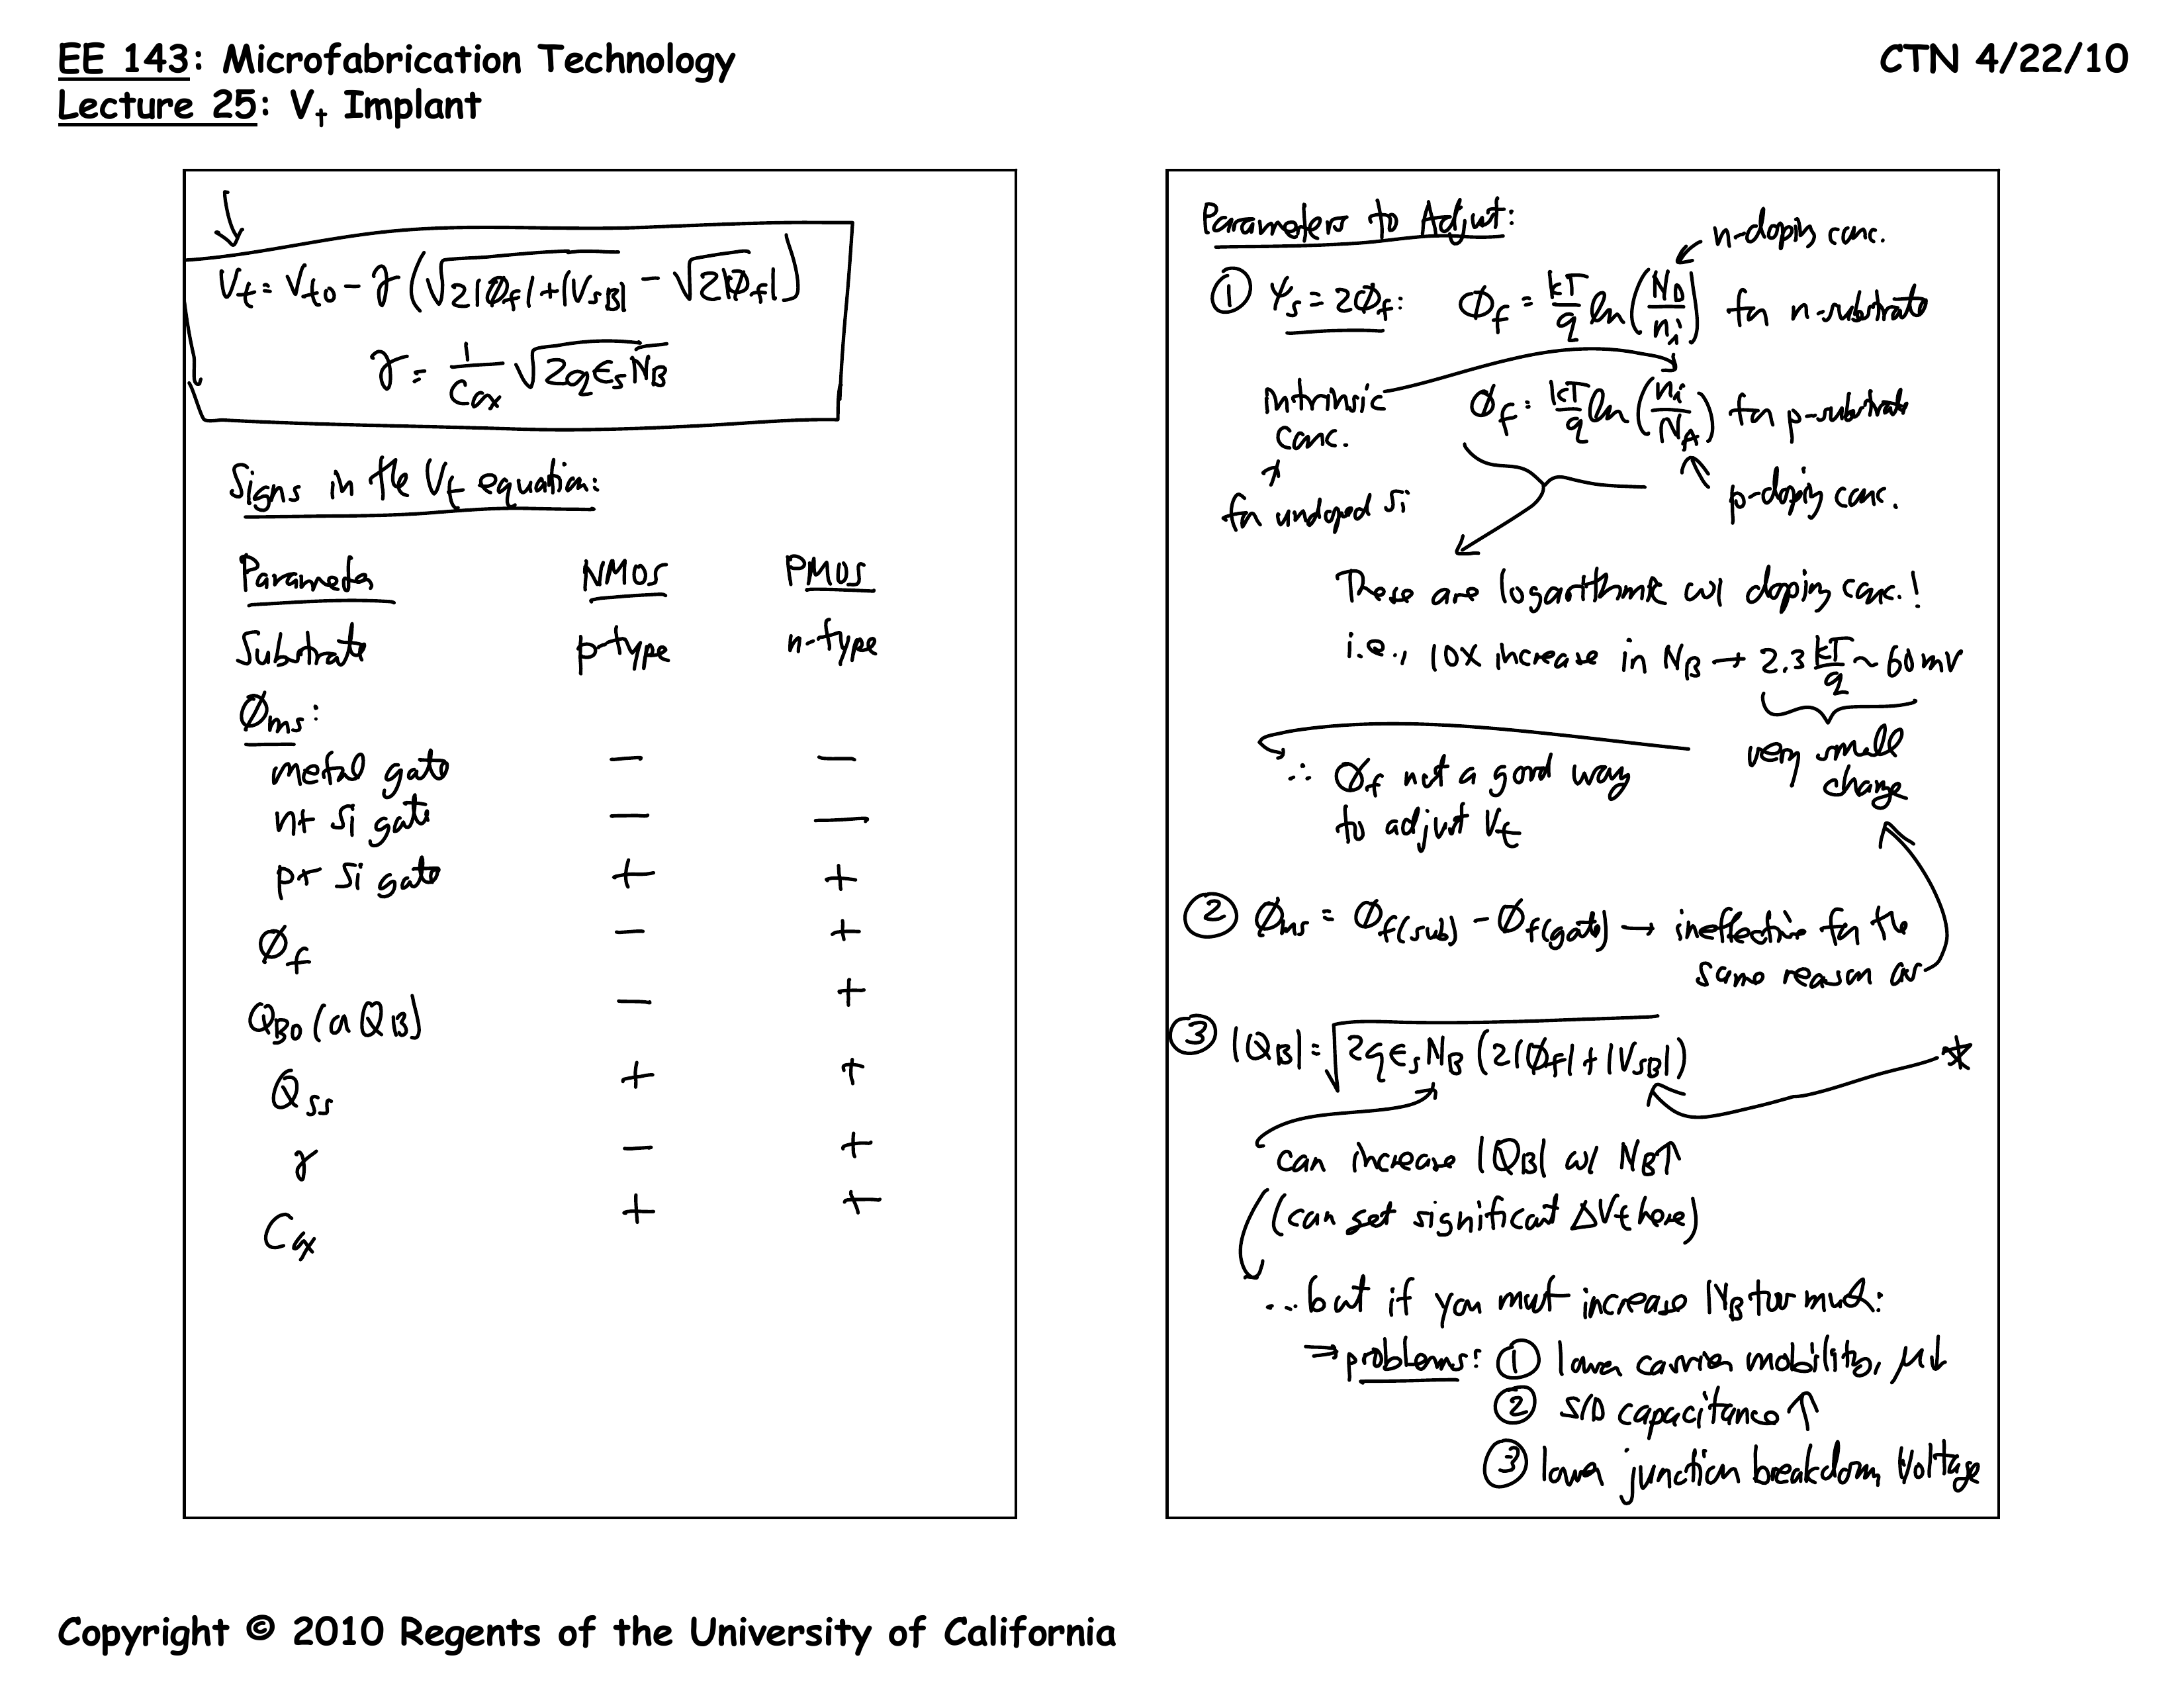 EE 143: Microfabrication Technology
Lecture 25: Vt Implant
CTN 4/22/10
Vt = Vto − γ (√2|Øf|+|VSB| − √2|Øf|)
γ = 1/Cox √2qϵsNB
Signs in the Vt equation:
Parameter NMOS PMOS
Substrate p-type n-type
Øms:
metal gate − −
n+ si gate − −
p+ si gate + +
Øf − +
QBO (or QB) − +
Qss + +
γ − +
Cox + +
Parameters to Adjust:
n-doping conc.
① Ψs = 2Øf: Øf = kT/q ln(ND/ni) for n-substrate
Intrinsic conc.
for undoped si
Øf = kT/q ln(ni/NA) for p-substrate
p-doping conc.
These are logarithmic w/ doping conc.!
i.e., 10x increase in NB → 2.3 kT/q ~ 60mV
very small
change
∴ Øf not a good way
to adjust Vt
② Øms = Øf(sub) − Øf(gate) → ineffective for the
same reason as
③ |QB| = √2qϵsNB (2|Øf|+|VSB|) *
can increase |QB| w/ NB↑
(can get significant ΔVt here)
...but if you must increase NB too much:
⇒ problems: ① lower carrier mobility, μ↓
② S/D capacitance ↑
③ lower junction breakdown voltage
Copyright © 2010 Regents of the University of California